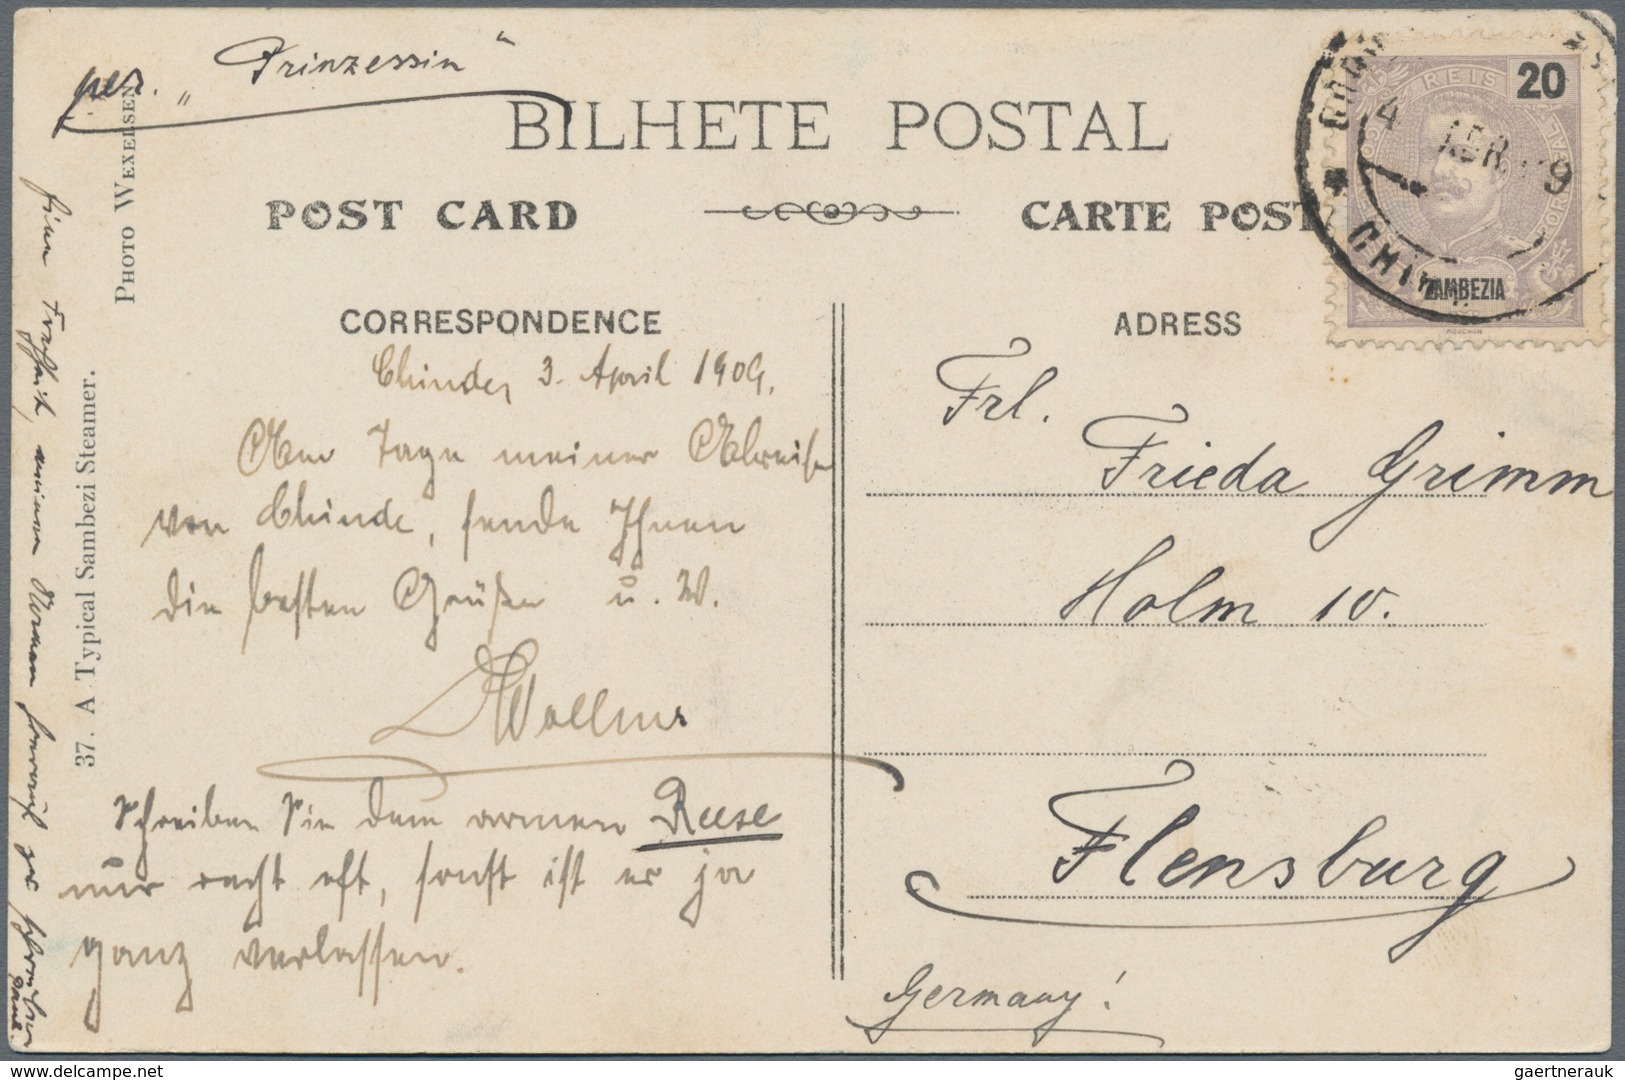 per. „Prinzessin"
BILHETE POSTAL
POST CARD
CARTE POST
20
REIS
ZAMBEZIA
4 ABR 9
CORRESPONDENCE
ADRESS
PHOTO WEXELSEN
37. A Typical Sambezi Steamer.
Chinde, 3. April 1909.
Am Tage meiner Abreise
von Chinde, sende Ihnen
die besten Grüße u. W.
Schreiben Sie dem armen Reese
nur recht oft, sonst ist er ja
ganz verlassen.
Frl.
Frieda Grimm
Holm 10.
Flensburg
Germany!
meinen Namen
delcampe.net
gaertnerauk